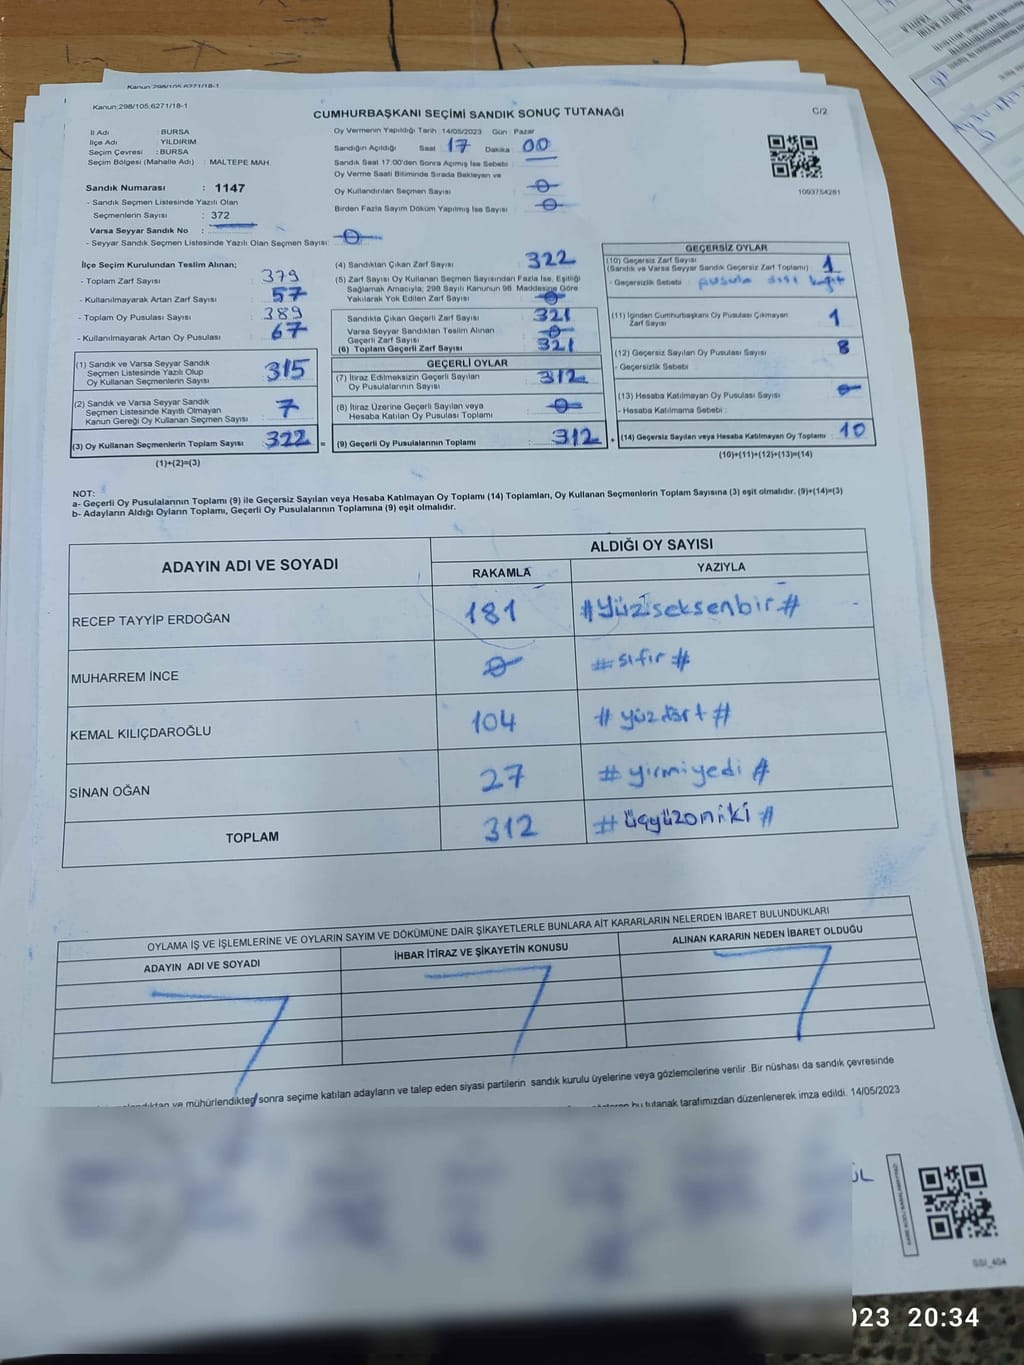 Kanun:298/105;6271/18-1
Kanun:298/105;6271/18-1
CUMHURBAŞKANI SEÇİMİ SANDIK SONUÇ TUTANAĞI
C/2
İl Adı : BURSA
İlçe Adı : YILDIRIM
Seçim Çevresi : BURSA
Seçim Bölgesi (Mahalle Adı) : MALTEPE MAH.
Sandık Numarası : 1147
- Sandık Seçmen Listesinde Yazılı Olan
Seçmenlerin Sayısı : 372
Varsa Seyyar Sandık No :
- Seyyar Sandık Seçmen Listesinde Yazılı Olan Seçmen Sayısı: 0
Oy Vermenin Yapıldığı Tarih 14/05/2023 Gün : Pazar
Sandığın Açıldığı Saat 17 Dakika : 00
Sandık Saat 17:00'den Sonra Açımış İse Sebebi :
Oy Verme Saati Bitiminde Sırada Bekleyen ve
Oy Kullandırılan Seçmen Sayısı : 0
Birden Fazla Sayım Döküm Yapılmış İse Sayısı : 0
1093754281
İlçe Seçim Kurulundan Teslim Alınan;
- Toplam Zarf Sayısı : 379
- Kullanılmayarak Artan Zarf Sayısı : 57
- Toplam Oy Pusulası Sayısı : 389
- Kullanılmayarak Artan Oy Pusulası : 67
(1) Sandık ve Varsa Seyyar Sandık
Seçmen Listesinde Yazılı Olup
Oy Kullanan Seçmenlerin Sayısı : 315
(2) Sandık ve Varsa Seyyar Sandık
Seçmen Listesinde Kayıtlı Olmayan
Kanun Gereği Oy Kullanan Seçmen Sayısı : 7
(3) Oy Kullanan Seçmenlerin Toplam Sayısı : 322 =
(1)+(2)=(3)
(4) Sandıktan Çıkan Zarf Sayısı : 322
(5) Zarf Sayısı Oy Kullanan Seçmen Sayısından Fazla İse, Eşitliği
Sağlamak Amacıyla, 298 Sayılı Kanunun 98. Maddesine Göre
Yakılarak Yok Edilen Zarf Sayısı : 0
Sandıkta Çıkan Geçerli Zarf Sayısı : 321
Varsa Seyyar Sandıktan Teslim Alınan
Geçerli Zarf Sayısı : 0
(6) Toplam Geçerli Zarf Sayısı : 321
GEÇERLİ OYLAR
(7) İtiraz Edilmeksizin Geçerli Sayılan
Oy Pusulalarının Sayısı : 312
(8) İtiraz Üzerine Geçerli Sayılan veya
Hesaba Katılan Oy Pusulası Toplamı : 0
(9) Geçerli Oy Pusulalarının Toplamı : 312 +
GEÇERSİZ OYLAR
(10) Geçersiz Zarf Sayısı
(Sandık ve Varsa Seyyar Sandık Geçersiz Zarf Toplamı) : 1
- Geçersizlik Sebebi : pusula dışı kağıt
(11) İçinden Cumhurbaşkanı Oy Pusulası Çıkmayan
Zarf Sayısı : 1
(12) Geçersiz Sayılan Oy Pusulası Sayısı : 8
- Geçersizlik Sebebi :
(13) Hesaba Katılmayan Oy Pusulası Sayısı : 0
- Hesaba Katılmama Sebebi :
(14) Geçersiz Sayılan veya Hesaba Katılmayan Oy Toplamı : 10
(10)+(11)+(12)+(13)=(14)
NOT:
a- Geçerli Oy Pusulalarının Toplamı (9) ile Geçersiz Sayılan veya Hesaba Katılmayan Oy Toplamı (14) Toplamları, Oy Kullanan Seçmenlerin Toplam Sayısına (3) eşit olmalıdır. (9)+(14)=(3)
b- Adayların Aldığı Oyların Toplamı, Geçerli Oy Pusulalarının Toplamına (9) eşit olmalıdır.
ADAYIN ADI VE SOYADI
ALDIĞI OY SAYISI
RAKAMLA YAZIYLA
RECEP TAYYİP ERDOĞAN 181 #Yüzseksenbir#
MUHARREM İNCE 0 #sıfır#
KEMAL KILIÇDAROĞLU 104 #yüzdört#
SİNAN OĞAN 27 #yirmiyedi#
TOPLAM 312 #üçyüzoniki#
OYLAMA İŞ VE İŞLEMLERİNE VE OYLARIN SAYIM VE DÖKÜMÜNE DAİR ŞİKAYETLERLE BUNLARA AİT KARARLARIN NELERDEN İBARET BULUNDUKLARI
ADAYIN ADI VE SOYADI İHBAR İTİRAZ VE ŞİKAYETİN KONUSU ALINAN KARARIN NEDEN İBARET OLDUĞU
ve mühürlendikten sonra seçime katılan adayların ve talep eden siyasi partilerin sandık kurulu üyelerine veya gözlemcilerine verilir. Bir nüshası da sandık çevresinde
bu tutanak tarafımızdan düzenlenerek imza edildi. 14/05/2023
SSI_404
023 20:34